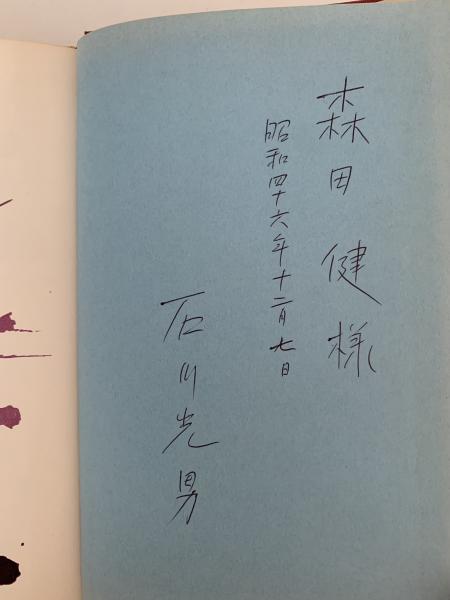 森田健様
昭和四十六年十二月七日
石川光男